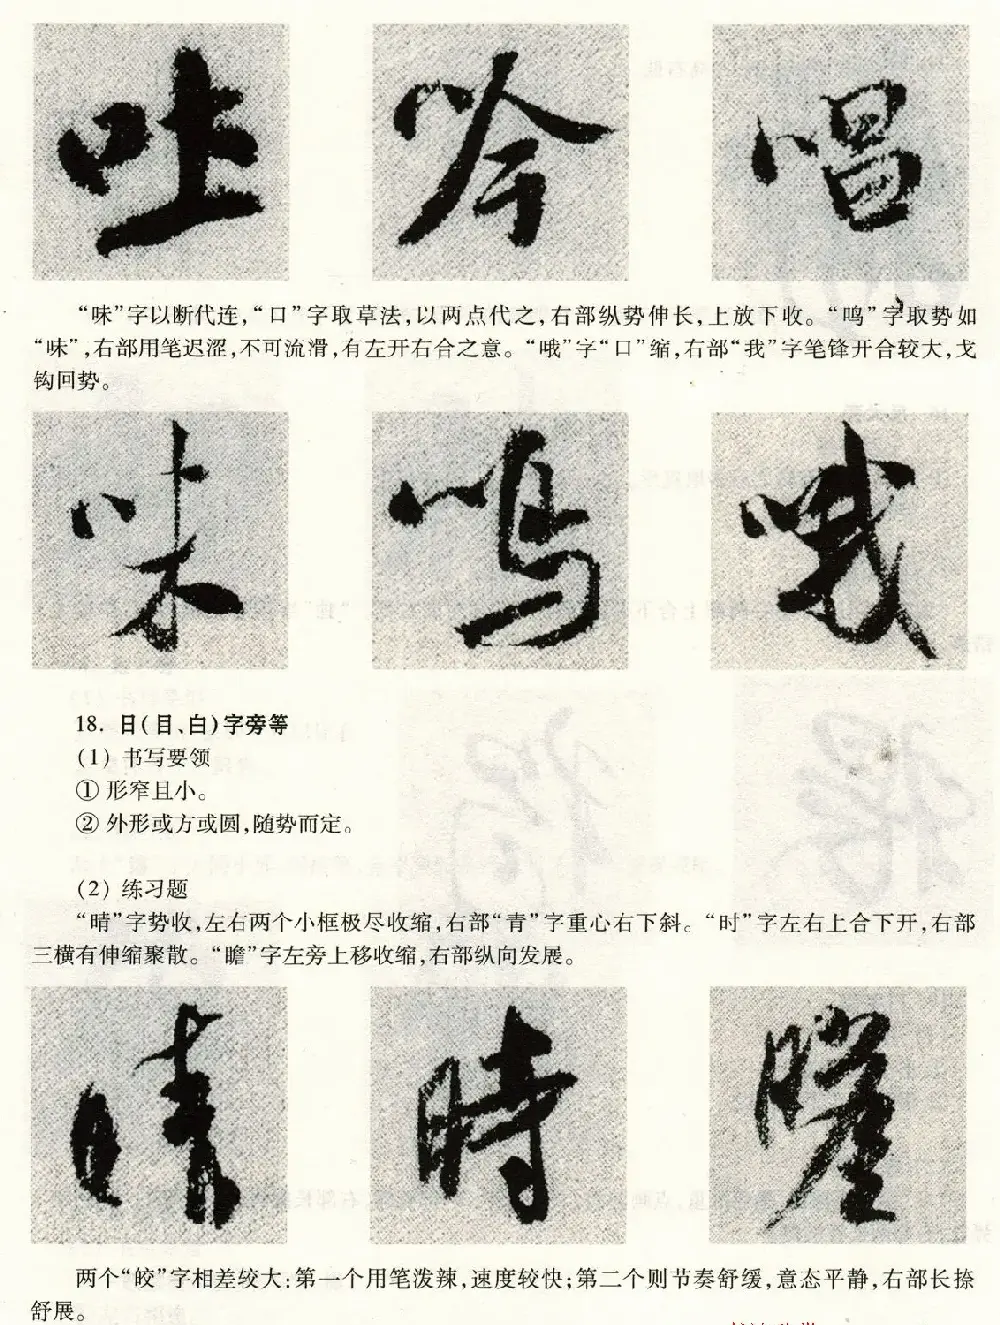 吐 吟 唱
“味”字以断代连,“口”字取草法,以两点代之,右部纵势伸长,上放下收。“鸣”字取势如
“味”,右部用笔迟涩,不可流滑,有左开右合之意。“哦”字“口”缩,右部“我”字笔锋开合较大,戈
钩回势。
味 鸣 哦
18. 日(目、白)字旁等
(1) 书写要领
① 形窄且小。
② 外形或方或圆,随势而定。
(2) 练习题
“晴”字势收,左右两个小框极尽收缩,右部“青”字重心右下斜。“时”字左右上合下开,右部
三横有伸缩聚散。“瞻”字左旁上移收缩,右部纵向发展。
晴 時 瞻
两个“皎”字相差较大:第一个用笔泼辣,速度较快;第二个则节奏舒缓,意态平静,右部长捺
舒展。